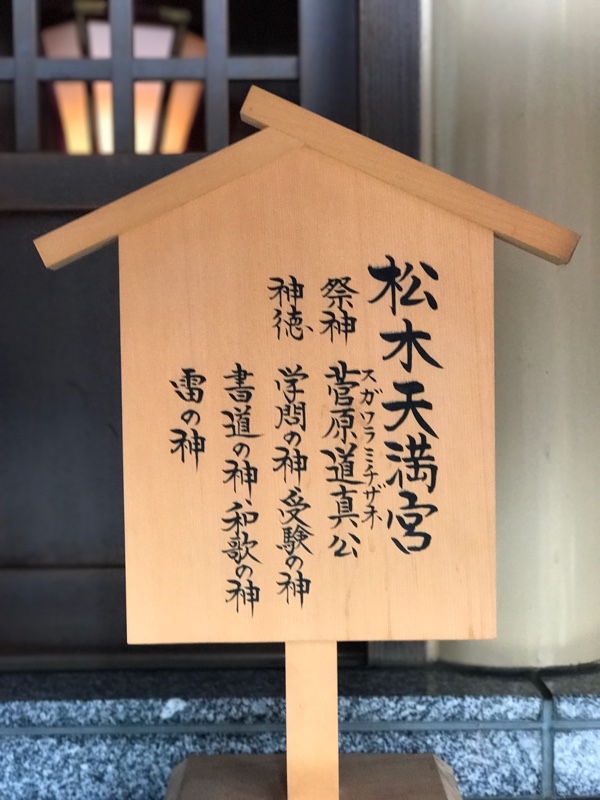 松木天満宮
祭神 菅原道真公
スガワラミチザネ
神徳 学問の神 受験の神
書道の神 和歌の神
雷の神